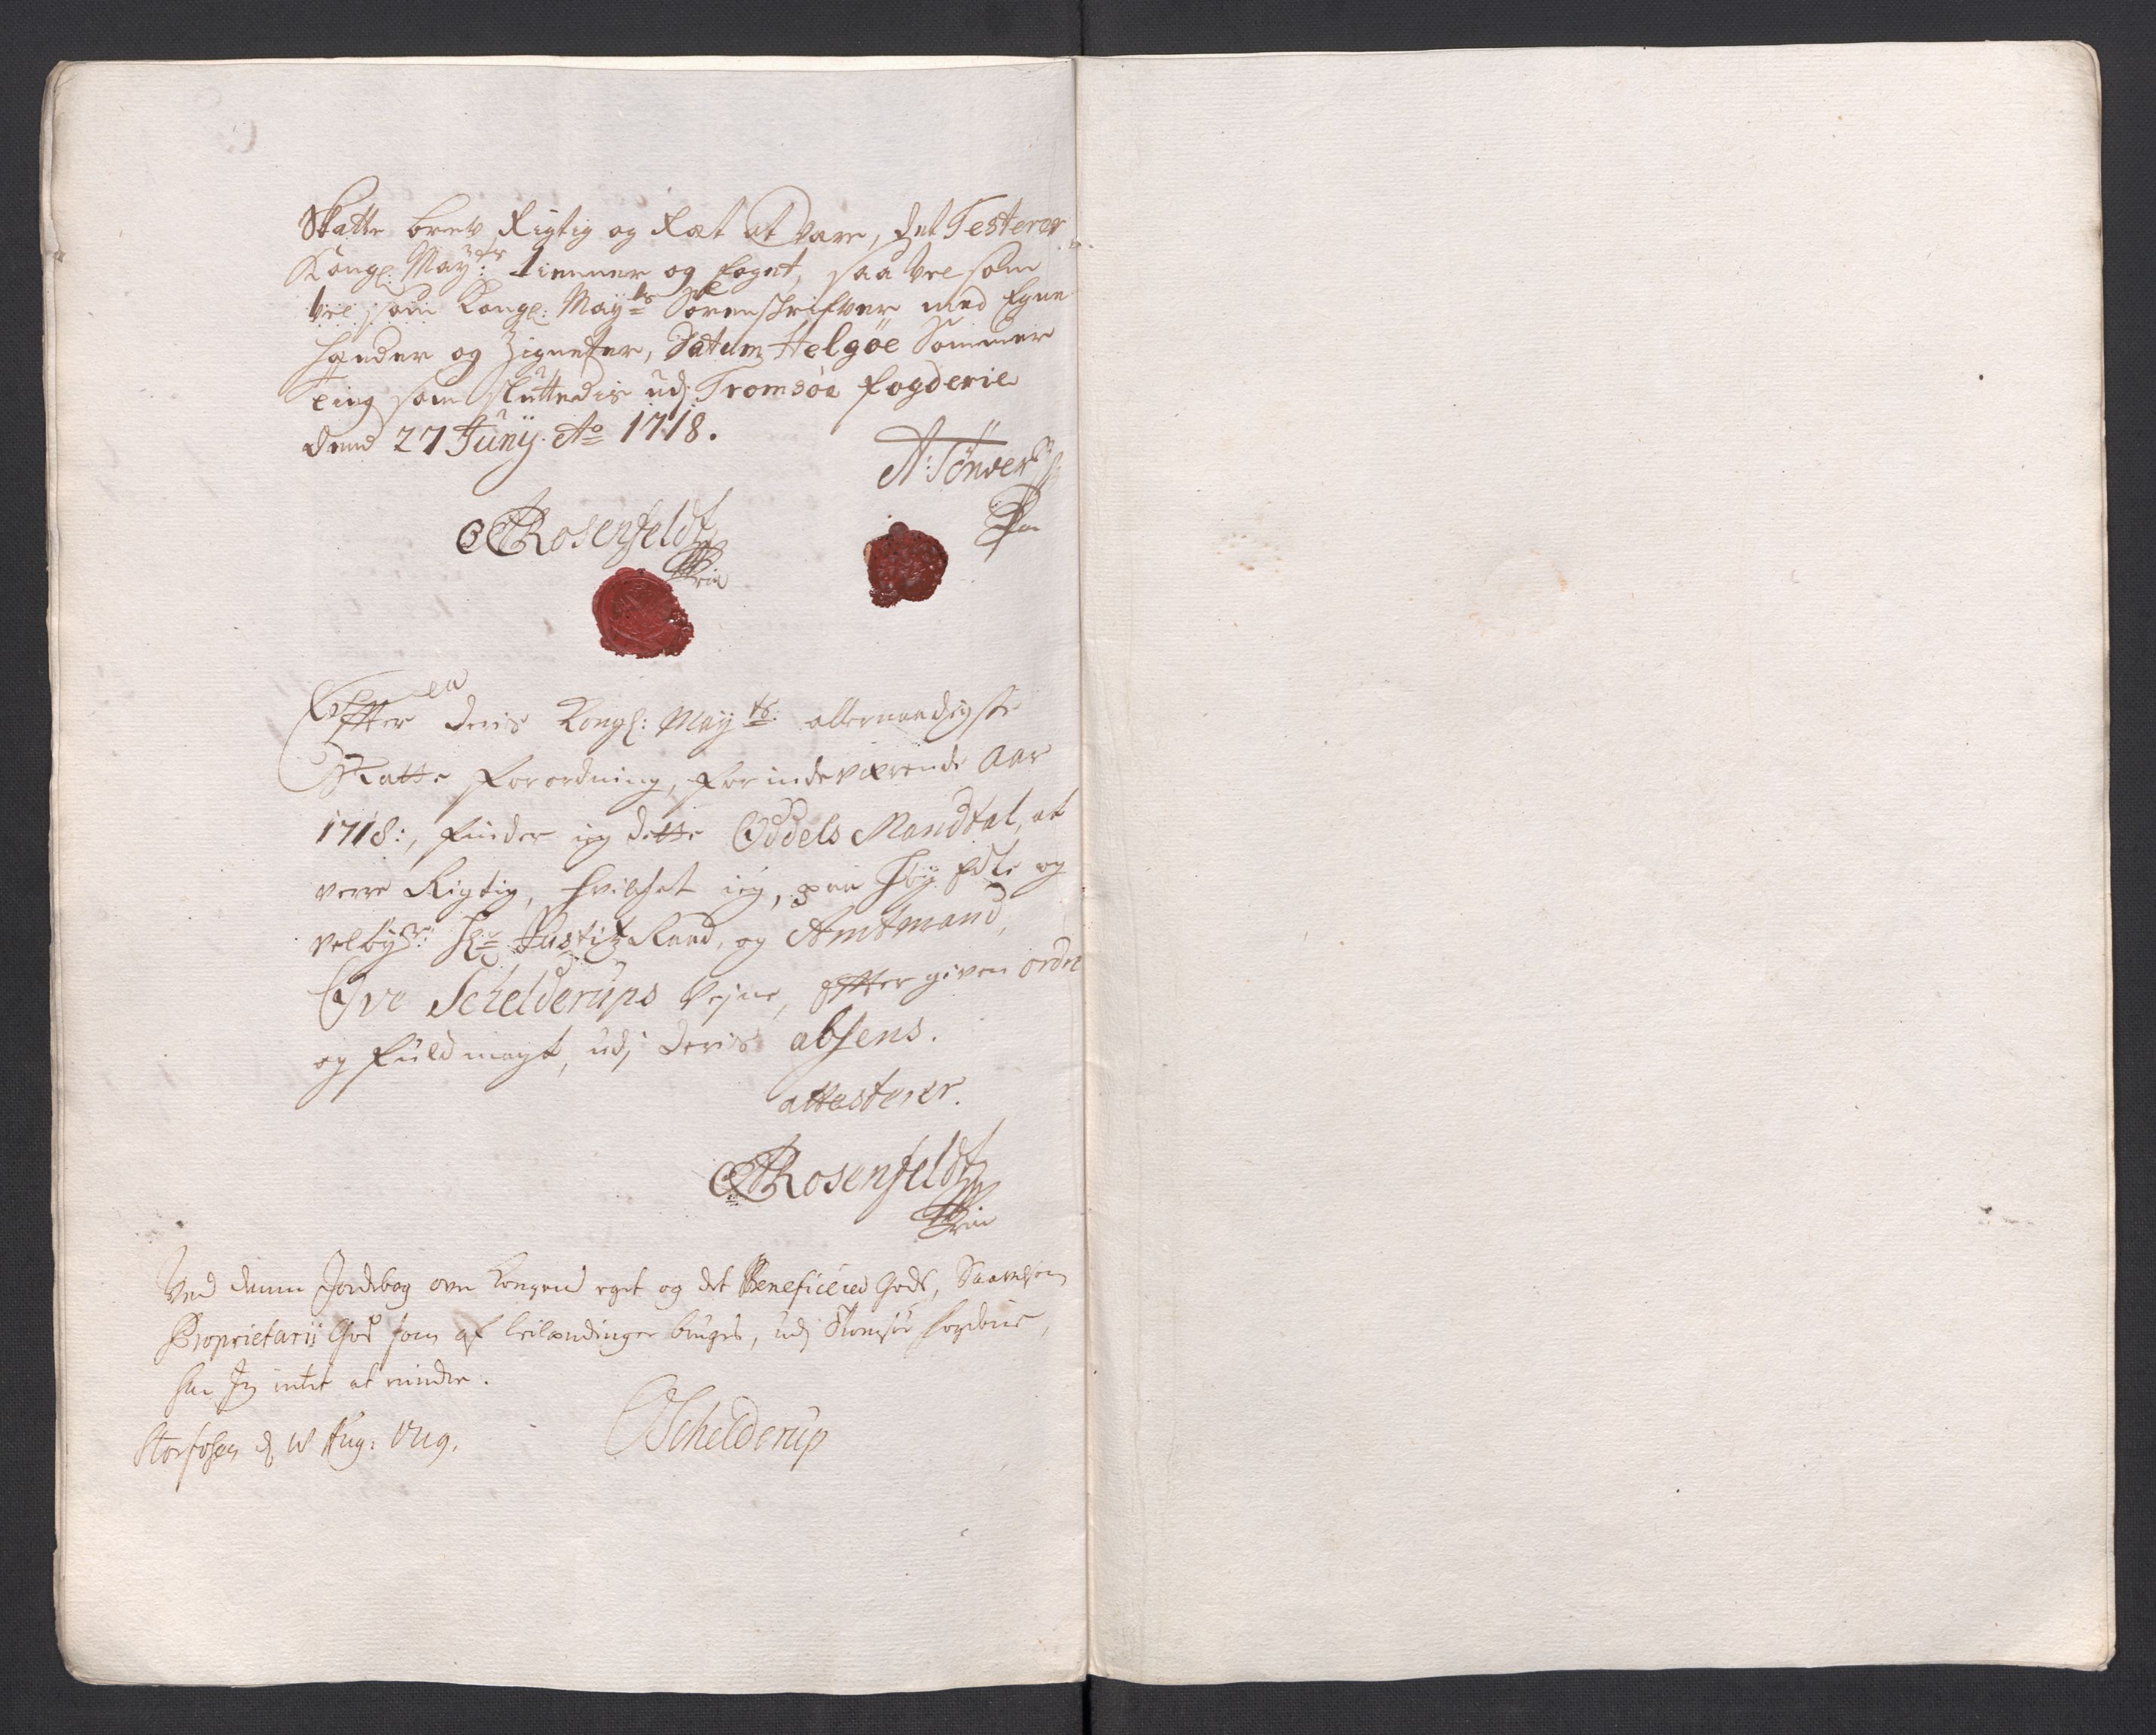 Skatte brev Rigtig og Ræt at Være, det Testerer
Kongl: May:ts tienner og fogut, saa vel som
vel som Kongl: May:ts Sorenskrifver med Egne
hænder og Zigneter, Datum Helgöe Sommer
ting som sluttedis udj Tromsöe fogderie
dend 27 Juny Ao 1718.
A: Tönder
ORosenfeldt
Effter deris Kongl: May:ts allernaadigste
Skatte forordning, for indeværende Aar
1718:, finder ieg dette Oddels Mandtal, at
verre Rigtig, hvilchet ieg, paa høy Edle og
velbr: Hr Justiz Raad, og Amtmand,
Ove Schelderups Vejne, effter given ordre
og fuldmagt, udj deris absens.
attesterer.
ORosenfeldt
Ved denne Jordebog over Kongens eget og det Beneficered Gods, Saavelsom
Proprietarii Gods som af leilændinger bruges, udj Tromsöe fogderie,
har Jeg intet at erindre.
Storfosen d Aug: 1719.
OSchelderup